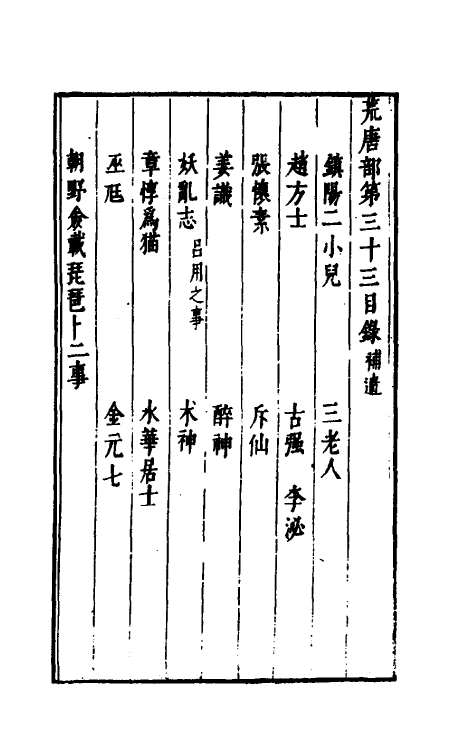 荒唐部第三十三目錄補遺
鎮陽二小兒　三老人
趙方士　古强　李泌
張懷素　斥仙
姜識　醉神
妖亂志呂用之事　木神
章惇爲猫　水華居士
巫尫　金元七
朝野僉載琵琶卜二事